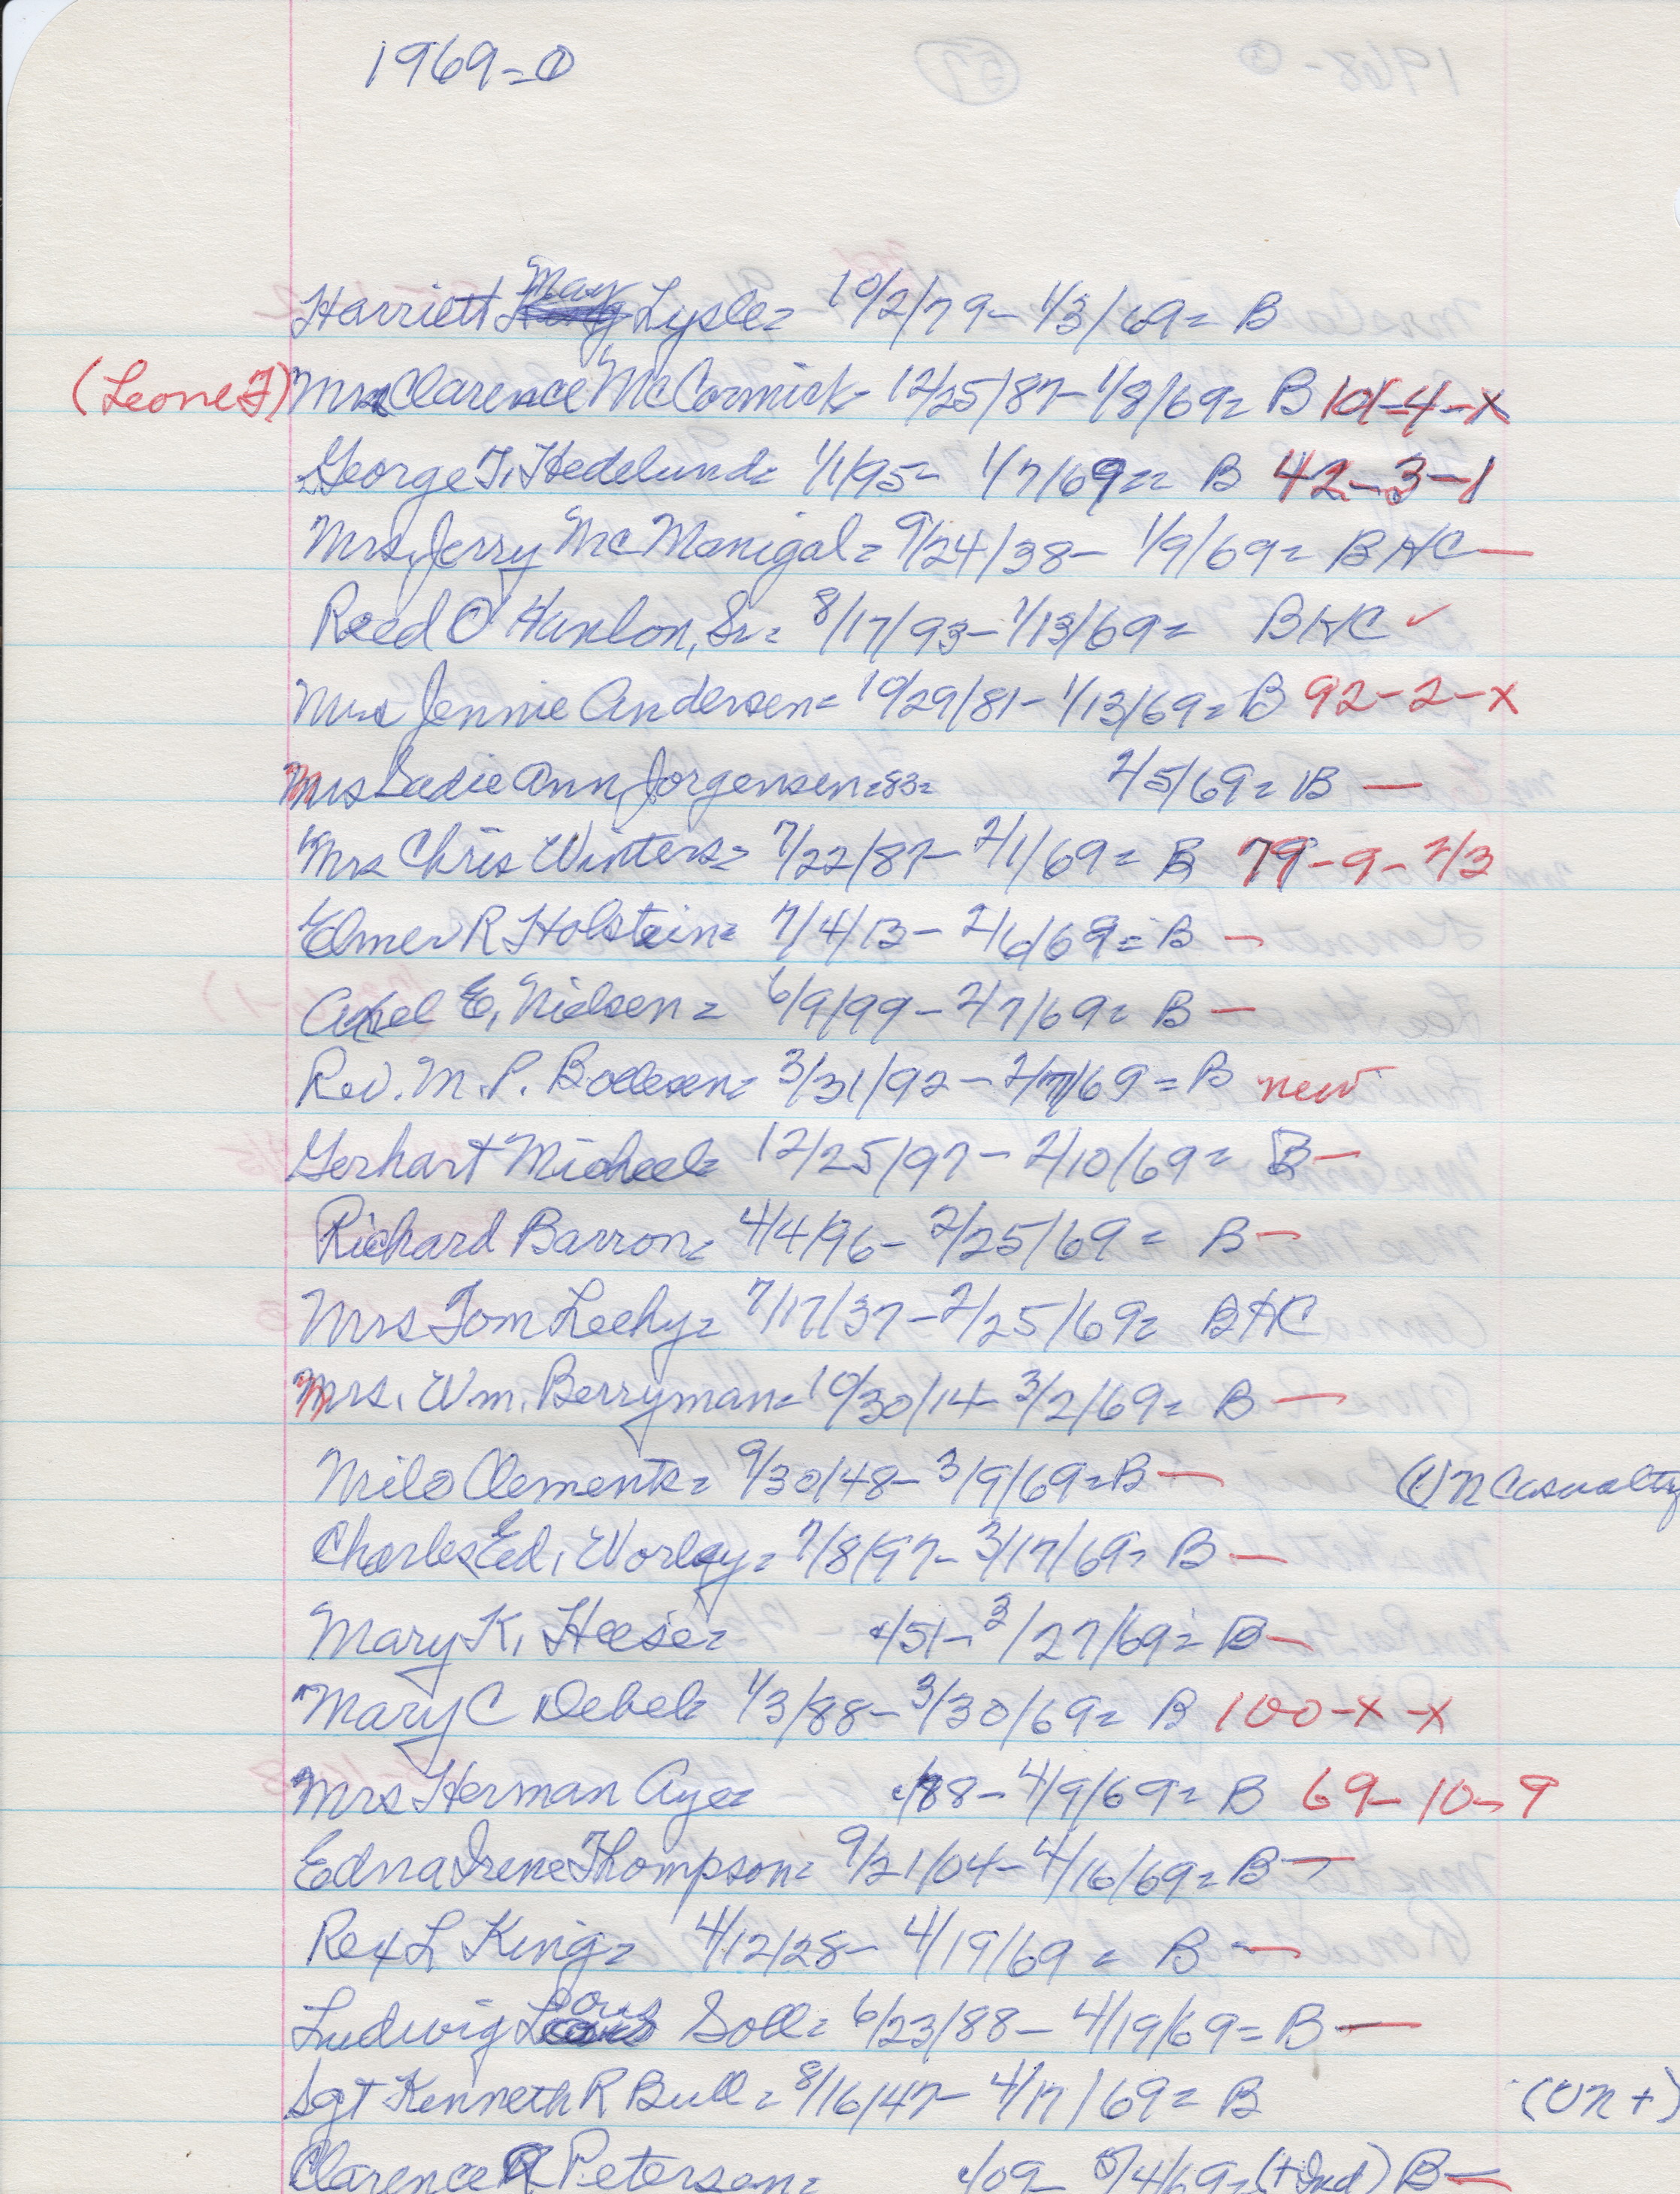 1969=①
Harriett May Lysle= 10/2/79- 1/3/69= B
(Leone F) Mrs Clarence McCormick- 12/25/87- 1/8/69= B 101-4-x
George T. Hedelund= 1/1/95- 1/7/69= B 42-3-1
Mrs. Jerry McManigal= 9/24/38- 1/9/69= BHC —
Reed O'Hanlon, Sr.= 8/17/93- 1/13/69= BHC ✓
Mrs Jennie Andersen= 10/29/81- 1/13/69= B 92-2-x
Mrs Sadie Ann Jorgensen=83= 2/5/69= B —
Mrs Chris Winters= 7/22/87- 2/1/69= B 79-9-2/3
Elmer R Holstein= 7/4/13- 2/6/69= B —
Axel E, Nielsen= 6/9/99- 2/7/69= B —
Rev. M. P. Bollesen= 3/31/92- 2/7/69=B new
Gerhart Micheel= 12/25/97- 2/10/69= B —
Richard Barron= 4/4/96- 2/25/69= B —
Mrs Tom Leehy= 7/17/37- 2/25/69= BHC
Mrs. Wm. Berryman= 10/30/14- 3/2/69= B —
Milo Clements= 9/30/48- 3/9/69=B — Casualty
Charles Ed, Worley= 7/8/97- 3/17/69= B —
Mary K, Heese= /51- 3/27/69= B —
Mary C Debel= 1/3/88- 3/30/69= B 100-x-x
Mrs Herman Aye= /88- 4/9/69= B 69-10-9
Edna Irene Thompson= 9/21/04- 4/16/69= B —
Rex L King= 4/12/28- 4/19/69= B —
Ludwig Louis Soll= 6/23/88- 4/19/69= B —
Sgt Kenneth R Bull= 8/16/47- 4/17/69= B (VN+)
Clarence R Petersen= /09- 5/4/69=(+Ind) B —